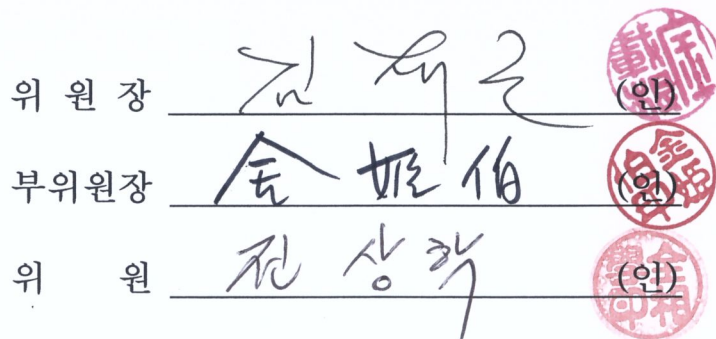 위 원 장 김재근 (인)
부위원장 金姬伯 (인)
위 원 전상학 (인)